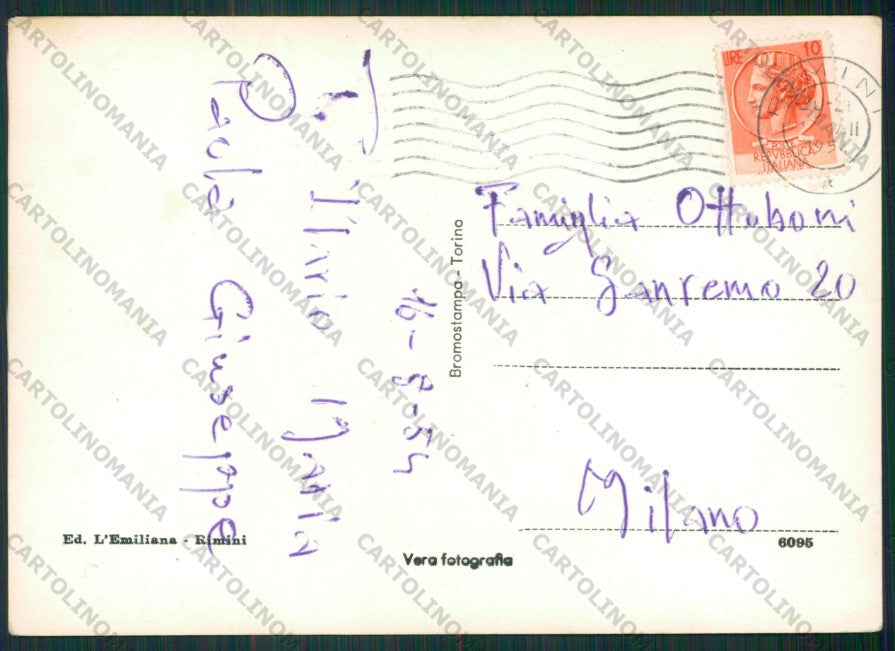 LIRE 10
REPVBBLICA
ITALIANA
RIMINI
Famiglia Ottoboni
Via Sanremo 20
Milano
16-8-54
Ilario Maria
Paola Giuseppe
Bromostampa - Torino
Ed. L'Emiliana - Rimini
Vera fotografia
6095
CARTOLINOMANIA